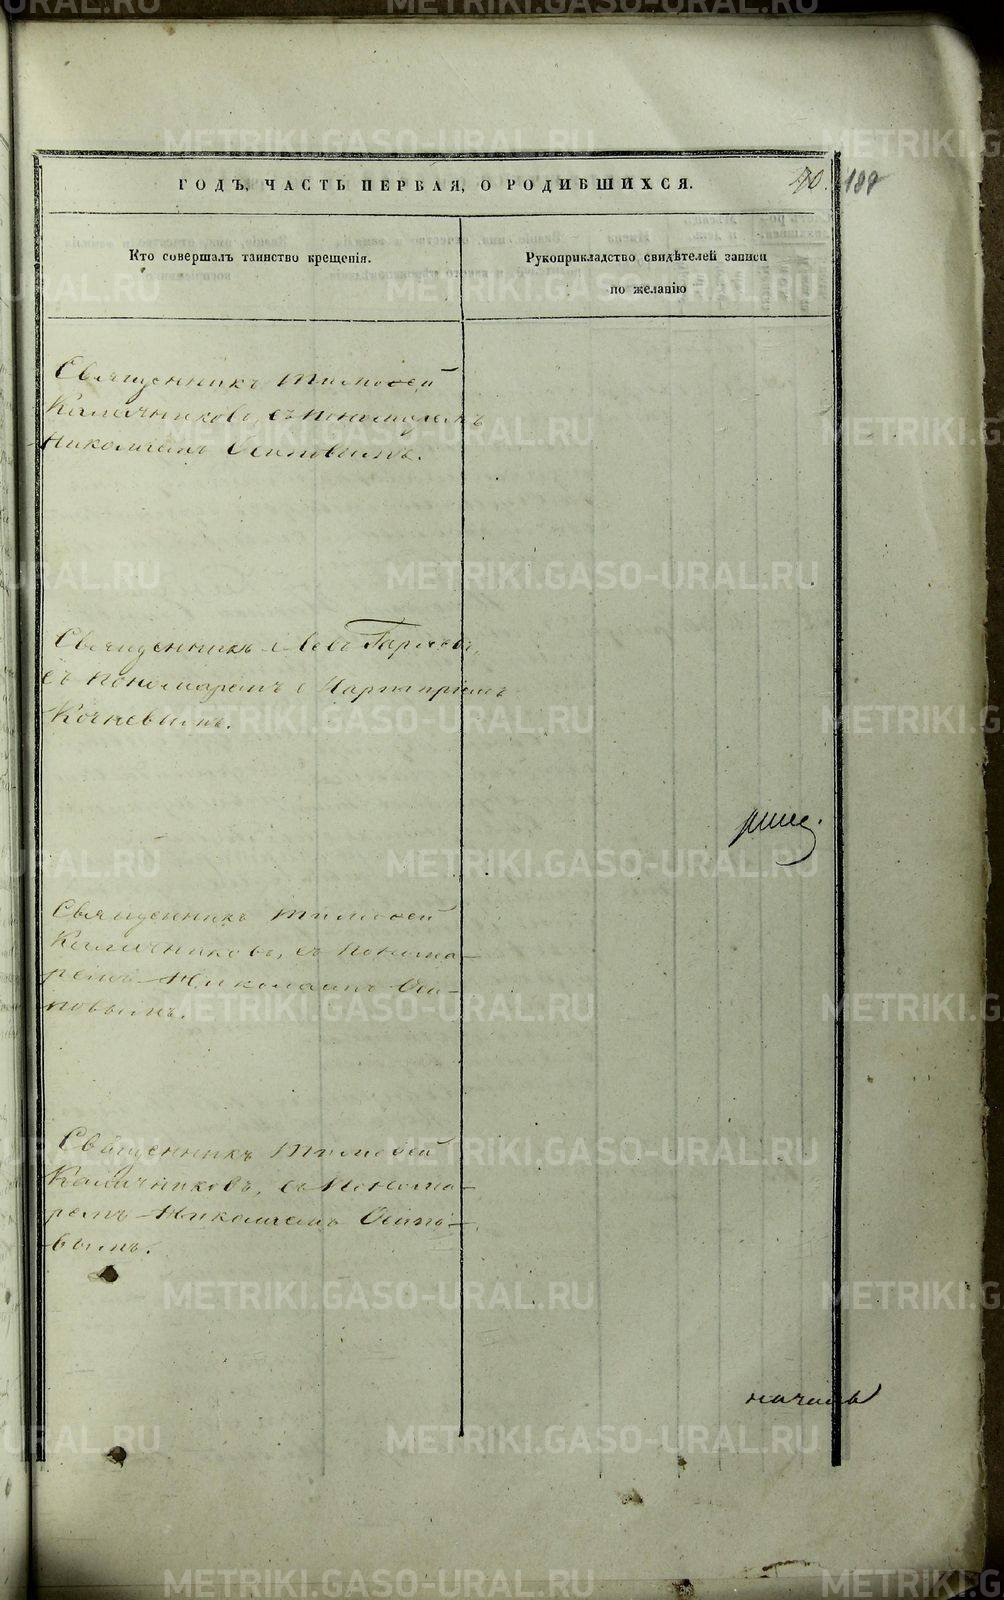 METRIKI.GASO-URAL.RU
ГОДЪ, ЧАСТЬ ПЕРВАЯ, О РОДИВШИХСЯ.
Кто совершалъ таинство крещенія.
Рукоприкладство свидѣтелей записи
по желанію
Священникъ Тимоѳей
съ пономаремъ
Николаемъ Осиповымъ.
Священникъ Левъ
съ пономаремъ
Кочневымъ.
Священникъ Тимоѳей
Калачниковъ, съ понома-
ремъ Николаемъ Оси-
повымъ.
Священникъ Тимоѳей
Калачниковъ, съ понома-
ремъ Николаемъ Осипо-
вымъ.